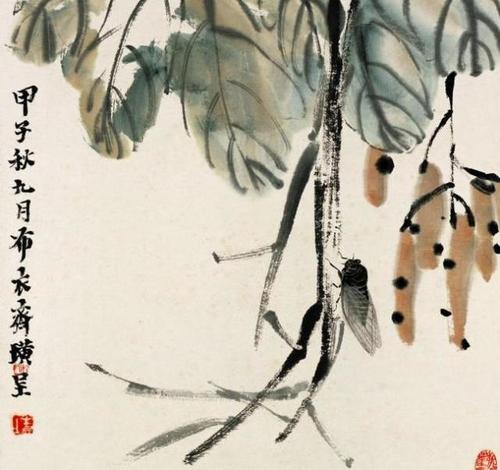 甲子秋九月布衣齊璜呈